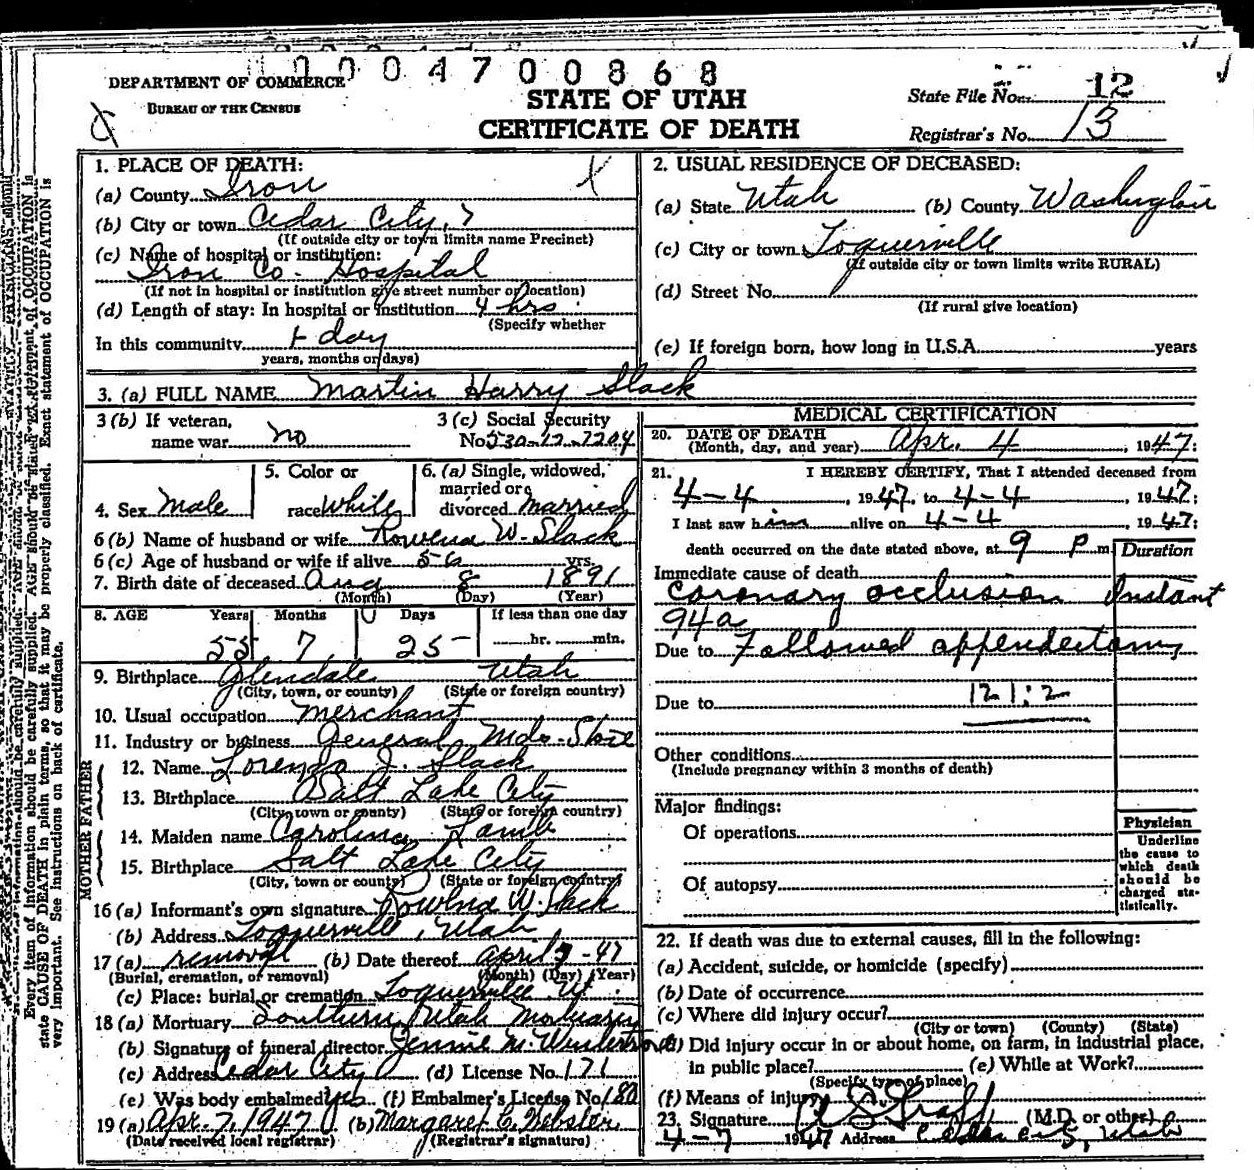 0004700868
DEPARTMENT OF COMMERCE
BUREAU OF THE CENSUS
STATE OF UTAH
CERTIFICATE OF DEATH
State File No. 12
Registrar's No. 13
1. PLACE OF DEATH:
(a) County Iron
(b) City or town Cedar City,
(If outside city or town limits name Precinct)
(c) Name of hospital or institution:
Iron Co. Hospital
(If not in hospital or institution give street number or location)
(d) Length of stay: In hospital or institution 4 hrs
(Specify whether
In this community 1 day
years, months or days)
2. USUAL RESIDENCE OF DECEASED:
(a) State Utah (b) County Washington
(c) City or town Toquerville
(If outside city or town limits write RURAL)
(d) Street No.
(If rural give location)
(e) If foreign born, how long in U.S.A. years
3. (a) FULL NAME Martin Harry Slack
3 (b) If veteran, name war no
3 (c) Social Security No. 530-12-7204
4. Sex Male
5. Color or race White
6. (a) Single, widowed, married or divorced married
6 (b) Name of husband or wife Rowena W. Slack
6 (c) Age of husband or wife if alive 56 yrs.
7. Birth date of deceased Aug 8 1891
(Month) (Day) (Year)
8. AGE Years Months Days If less than one day
55 7 25 hr. min.
9. Birthplace Glendale Utah
(City, town, or county) (State or foreign country)
10. Usual occupation Merchant
11. Industry or business General Mds. Store
FATHER
12. Name Lorenzo J. Slack
13. Birthplace Salt Lake City
(City, town or county) (State or foreign country)
MOTHER
14. Maiden name Caroline Lamb
15. Birthplace Salt Lake City
(City, town or county) (State or foreign country)
16 (a) Informant's own signature Rowena W. Slack
(b) Address Toquerville, Utah
17 (a) removal (b) Date thereof April 7 - 47
(Burial, cremation, or removal) (Month) (Day) (Year)
(c) Place: burial or cremation Toquerville Ut.
18 (a) Mortuary Southern Utah Mortuary
(b) Signature of funeral director Jennie M.
(c) Address Cedar City (d) License No. 171
(e) Was body embalmed? yes (f) Embalmer's License No. 180
19 (a) Apr. 7, 1947 (b) Margaret C. Webster
(Date received local registrar) (Registrar's signature)
MEDICAL CERTIFICATION
20. DATE OF DEATH
(Month, day, and year) Apr. 4, 1947;
21. I HEREBY CERTIFY, That I attended deceased from
4-4, 1947, to 4-4, 1947;
I last saw him alive on 4-4, 1947;
death occurred on the date stated above, at 9 P m
Duration
Immediate cause of death
Coronary occlusion Instant
94a
Due to Followed appendectomy
Due to 121:2
Other conditions
(Include pregnancy within 3 months of death)
Major findings:
Of operations
Of autopsy
Physician
Underline the cause to which death should be charged statistically.
22. If death was due to external causes, fill in the following:
(a) Accident, suicide, or homicide (specify)
(b) Date of occurrence
(c) Where did injury occur?
(City or town) (County) (State)
(d) Did injury occur in or about home, on farm, in industrial place,
in public place? (e) While at Work?
(Specify type of place)
(f) Means of injury
23. Signature (M.D. or other)
4-7 1947 Address Cedar City, Utah
Every item of information should be carefully supplied. AGE should be stated EXACTLY. PHYSICIANS should
state CAUSE OF DEATH in plain terms, so that it may be properly classified. Exact statement of OCCUPATION is
very important. See instructions on back of certificate.